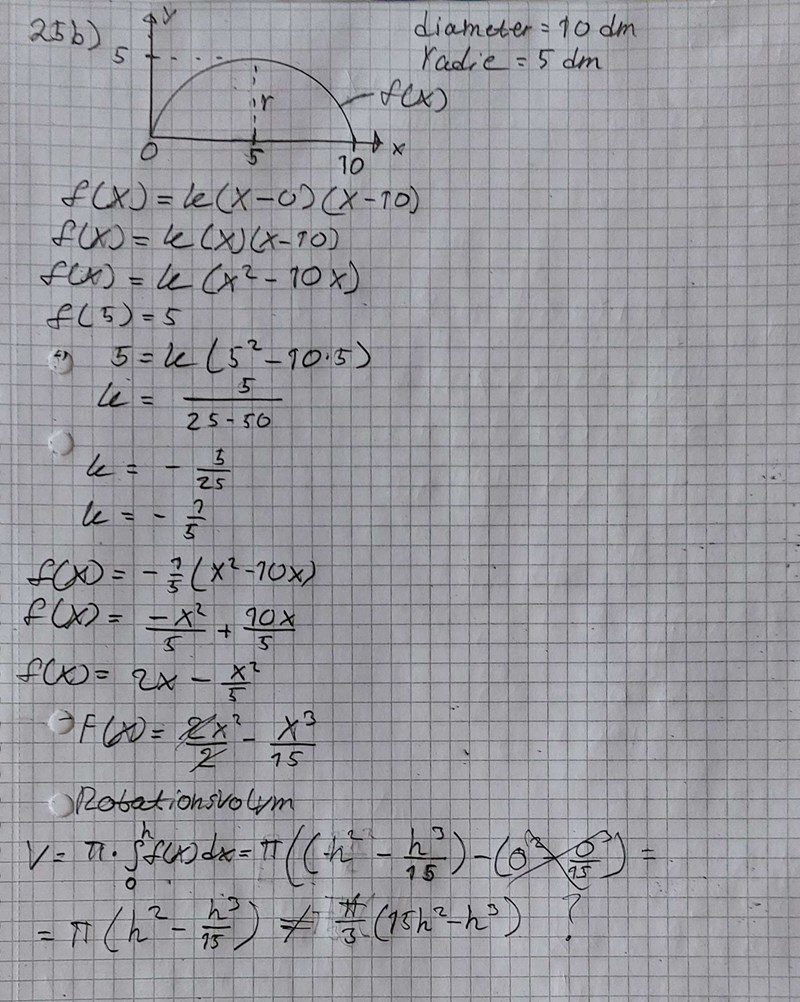 25b)
y
diameter = 10 dm
radie = 5 dm
5
r
f(x)
0
5
10
x
f(x) = k(x-0)(x-10)
f(x) = k(x)(x-10)
f(x) = k(x² - 10x)
f(5) = 5
5 = k(5² - 10·5)
k = 5/(25-50)
k = - 5/25
k = - 1/5
f(x) = - 1/5 (x² - 10x)
f(x) = -x²/5 + 10x/5
f(x) = 2x - x²/5
F(x) = 2x²/2 - x³/15
Rotationsvolym
V = π · ∫₀ʰ f(x)dx = π((h² - h³/15) - (0² - 0³/15)) =
= π(h² - h³/15) ≠ π/3 (15h² - h³) ?